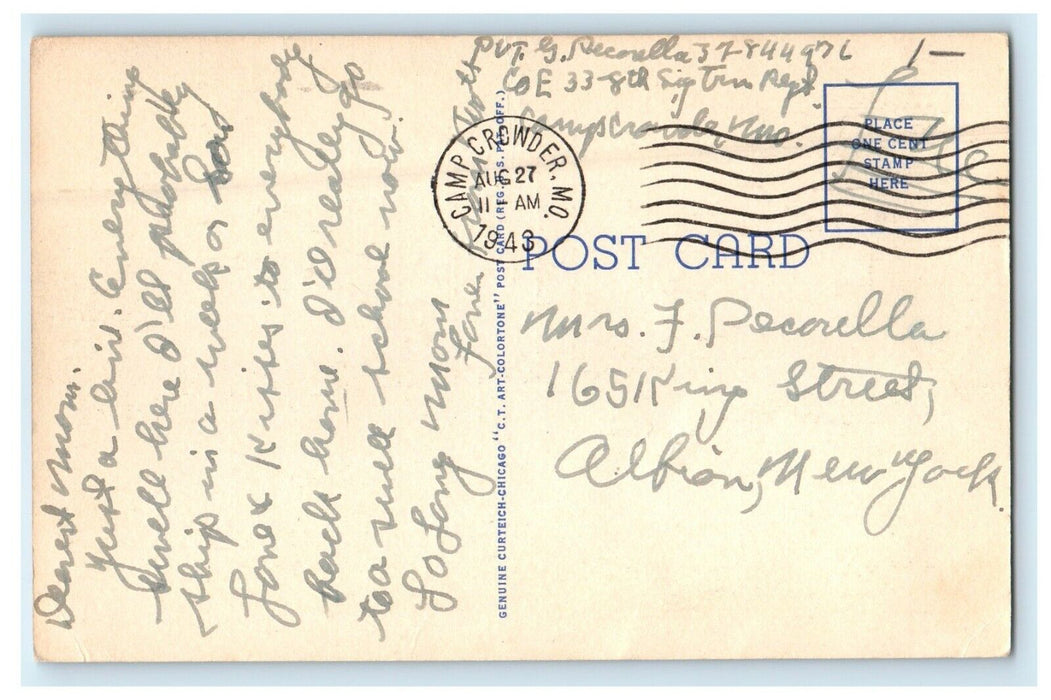 Pvt. G. Pecorella 37844976
Co E 33-8th Sig Trn Regt.
Camp Crowder, Mo.
1—
Free
PLACE
ONE CENT
STAMP
HERE
CAMP CROWDER, MO.
AUG 27
11 - AM
1943
POST CARD
Mrs. F. Pecorella
165 King Street,
Albion, New York.
GENUINE CURTEICH-CHICAGO "C.T. ART-COLORTONE" POST CARD (REG. U.S. PAT. OFF.)
Dearest Mom.
Just a line. Everything
well here I'll probably
ship in a week or so
Love & Kisses to everybody
back home. I'd really go
to a school now.
So Long Mom
Love